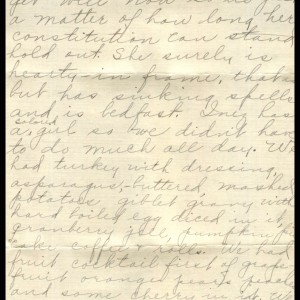 get well now
a matter of how long her
constitution can stand
hold out. She surely is
hearty-in frame, that
but has sinking spells
and is bedfast. Inez has
a colored girl so we didn't have
to do much all day. We
had turkey with dressing,
asparagus, buttered, mashed
potatoes giblet gravy with
hard boiled egg diced in it,
cranberry jell, pumpkin
cake coffee & rolls. We had
fruit cocktail first of grape
fruit orange pears
and some cherry